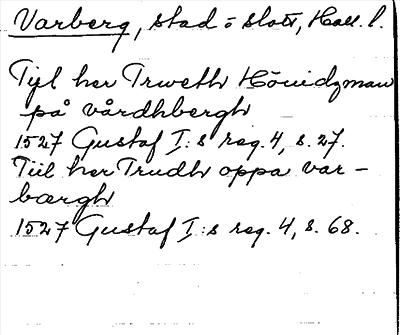 Varberg, stad o slott, Hall. l.
Tijl her Trweth Höuidzman
på vårdhbergh
1527 Gustaf I:s reg. 4, s. 27.
Tiil her Trudh oppa var-
bærgh
1527 Gustaf I:s reg. 4, s. 68.